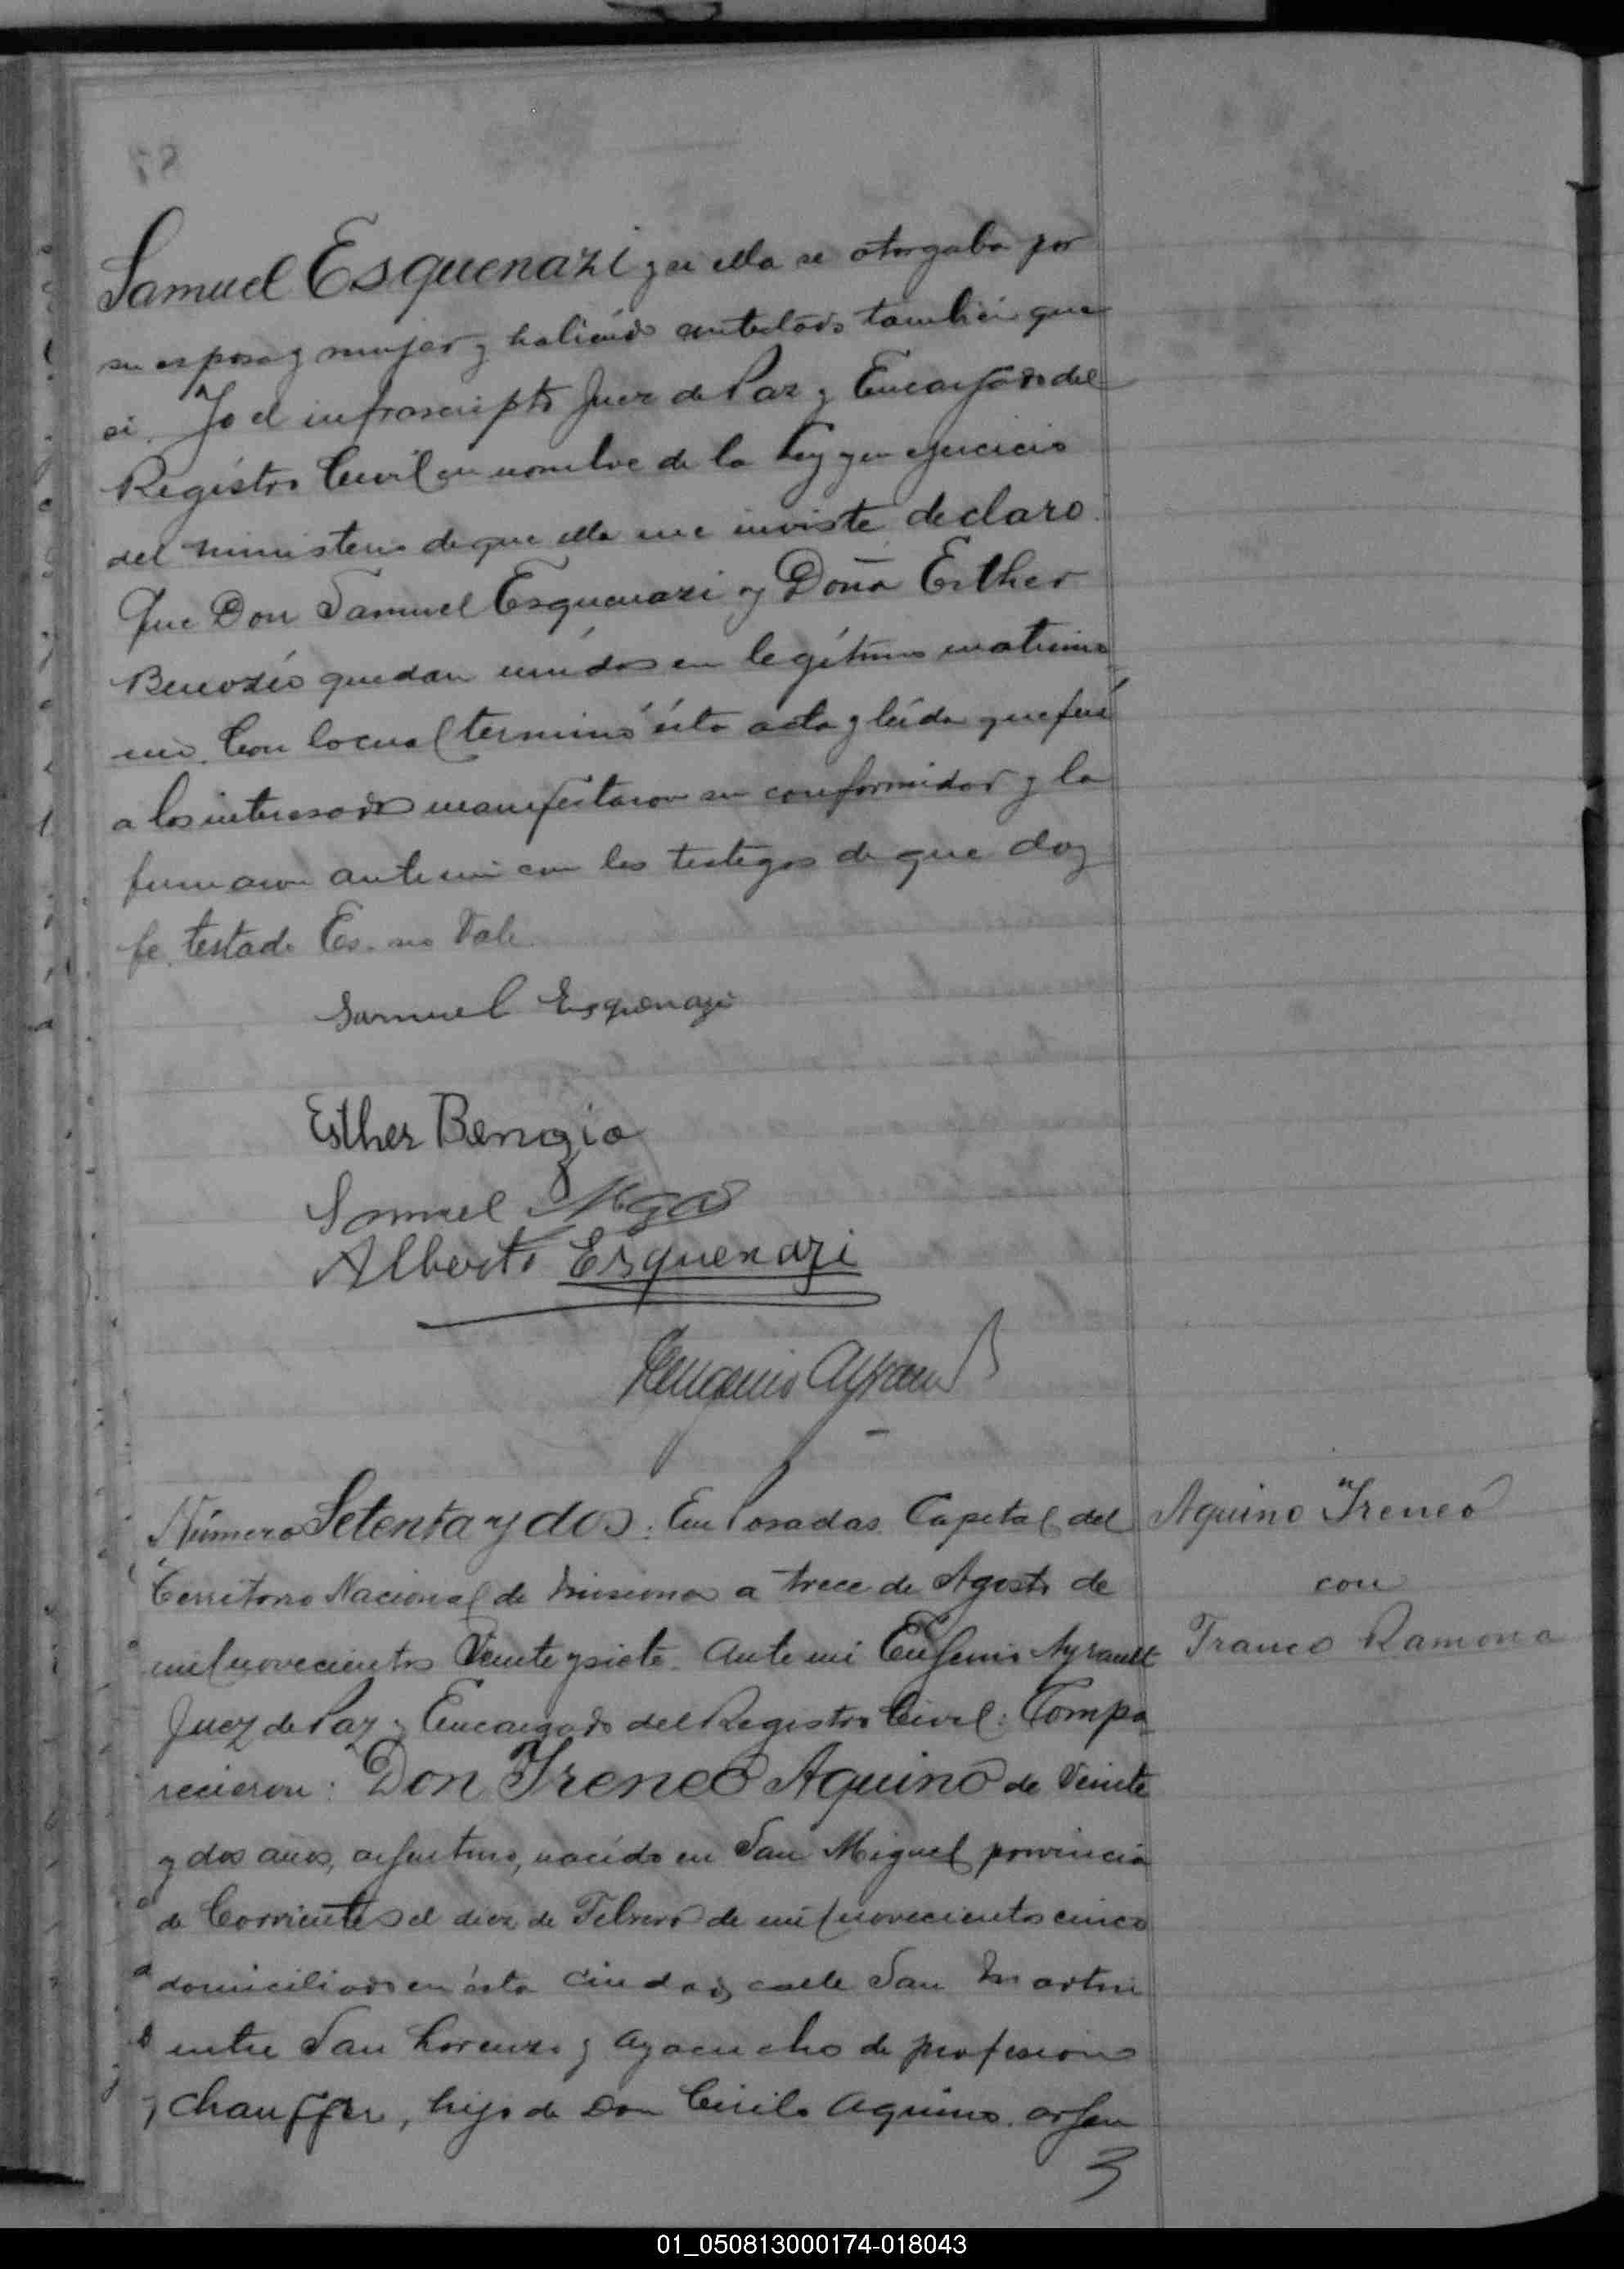 Samuel Esquenazi y si ella se otorgaba por
su esposa y mujer y habiendo contestado también que
si. Yo el infrascripto Juez de Paz y Encargado del
Registro Civil en nombre de la Ley y en ejercicio
del ministerio de que ella me inviste declaro
Que Don Samuel Esquenazi y Doña Esther
Benozio quedan unidos en legítimo matrimo
nio. Con lo cual terminó ésta acta y leída que fué
a los interesados manifestaron su conformidad y la
firmaron ante mi con los testigos de que doy
fe. testado Es. no Vale.
Samuel Esquenazi
Esther Benozio
Samuel
Alberto Esquenazi
Eugenio Ayrault
Número Setenta y dos: En Posadas Capital del
Territorio Nacional de Misiones a trece de Agosto de
mil novecientos Veinte y siete. Ante mi Eugenio Ayrault
Juez de Paz y Encargado del Registro Civil: Compa
recieron: Don Ireneo Aquino de Veinte
y dos años, argentino, nacido en San Miguel provincia
de Corrientes el diez de Febrero de mil novecientos cinco
domiciliado en ésta Ciudad, calle San Martin
entre San Lorenzo y Ayacucho de profesion
chauffer, hijo de Don Cirilo Aquino. argen
3
Aquino Ireneo
con
Franco Ramona
01_050813000174-018043